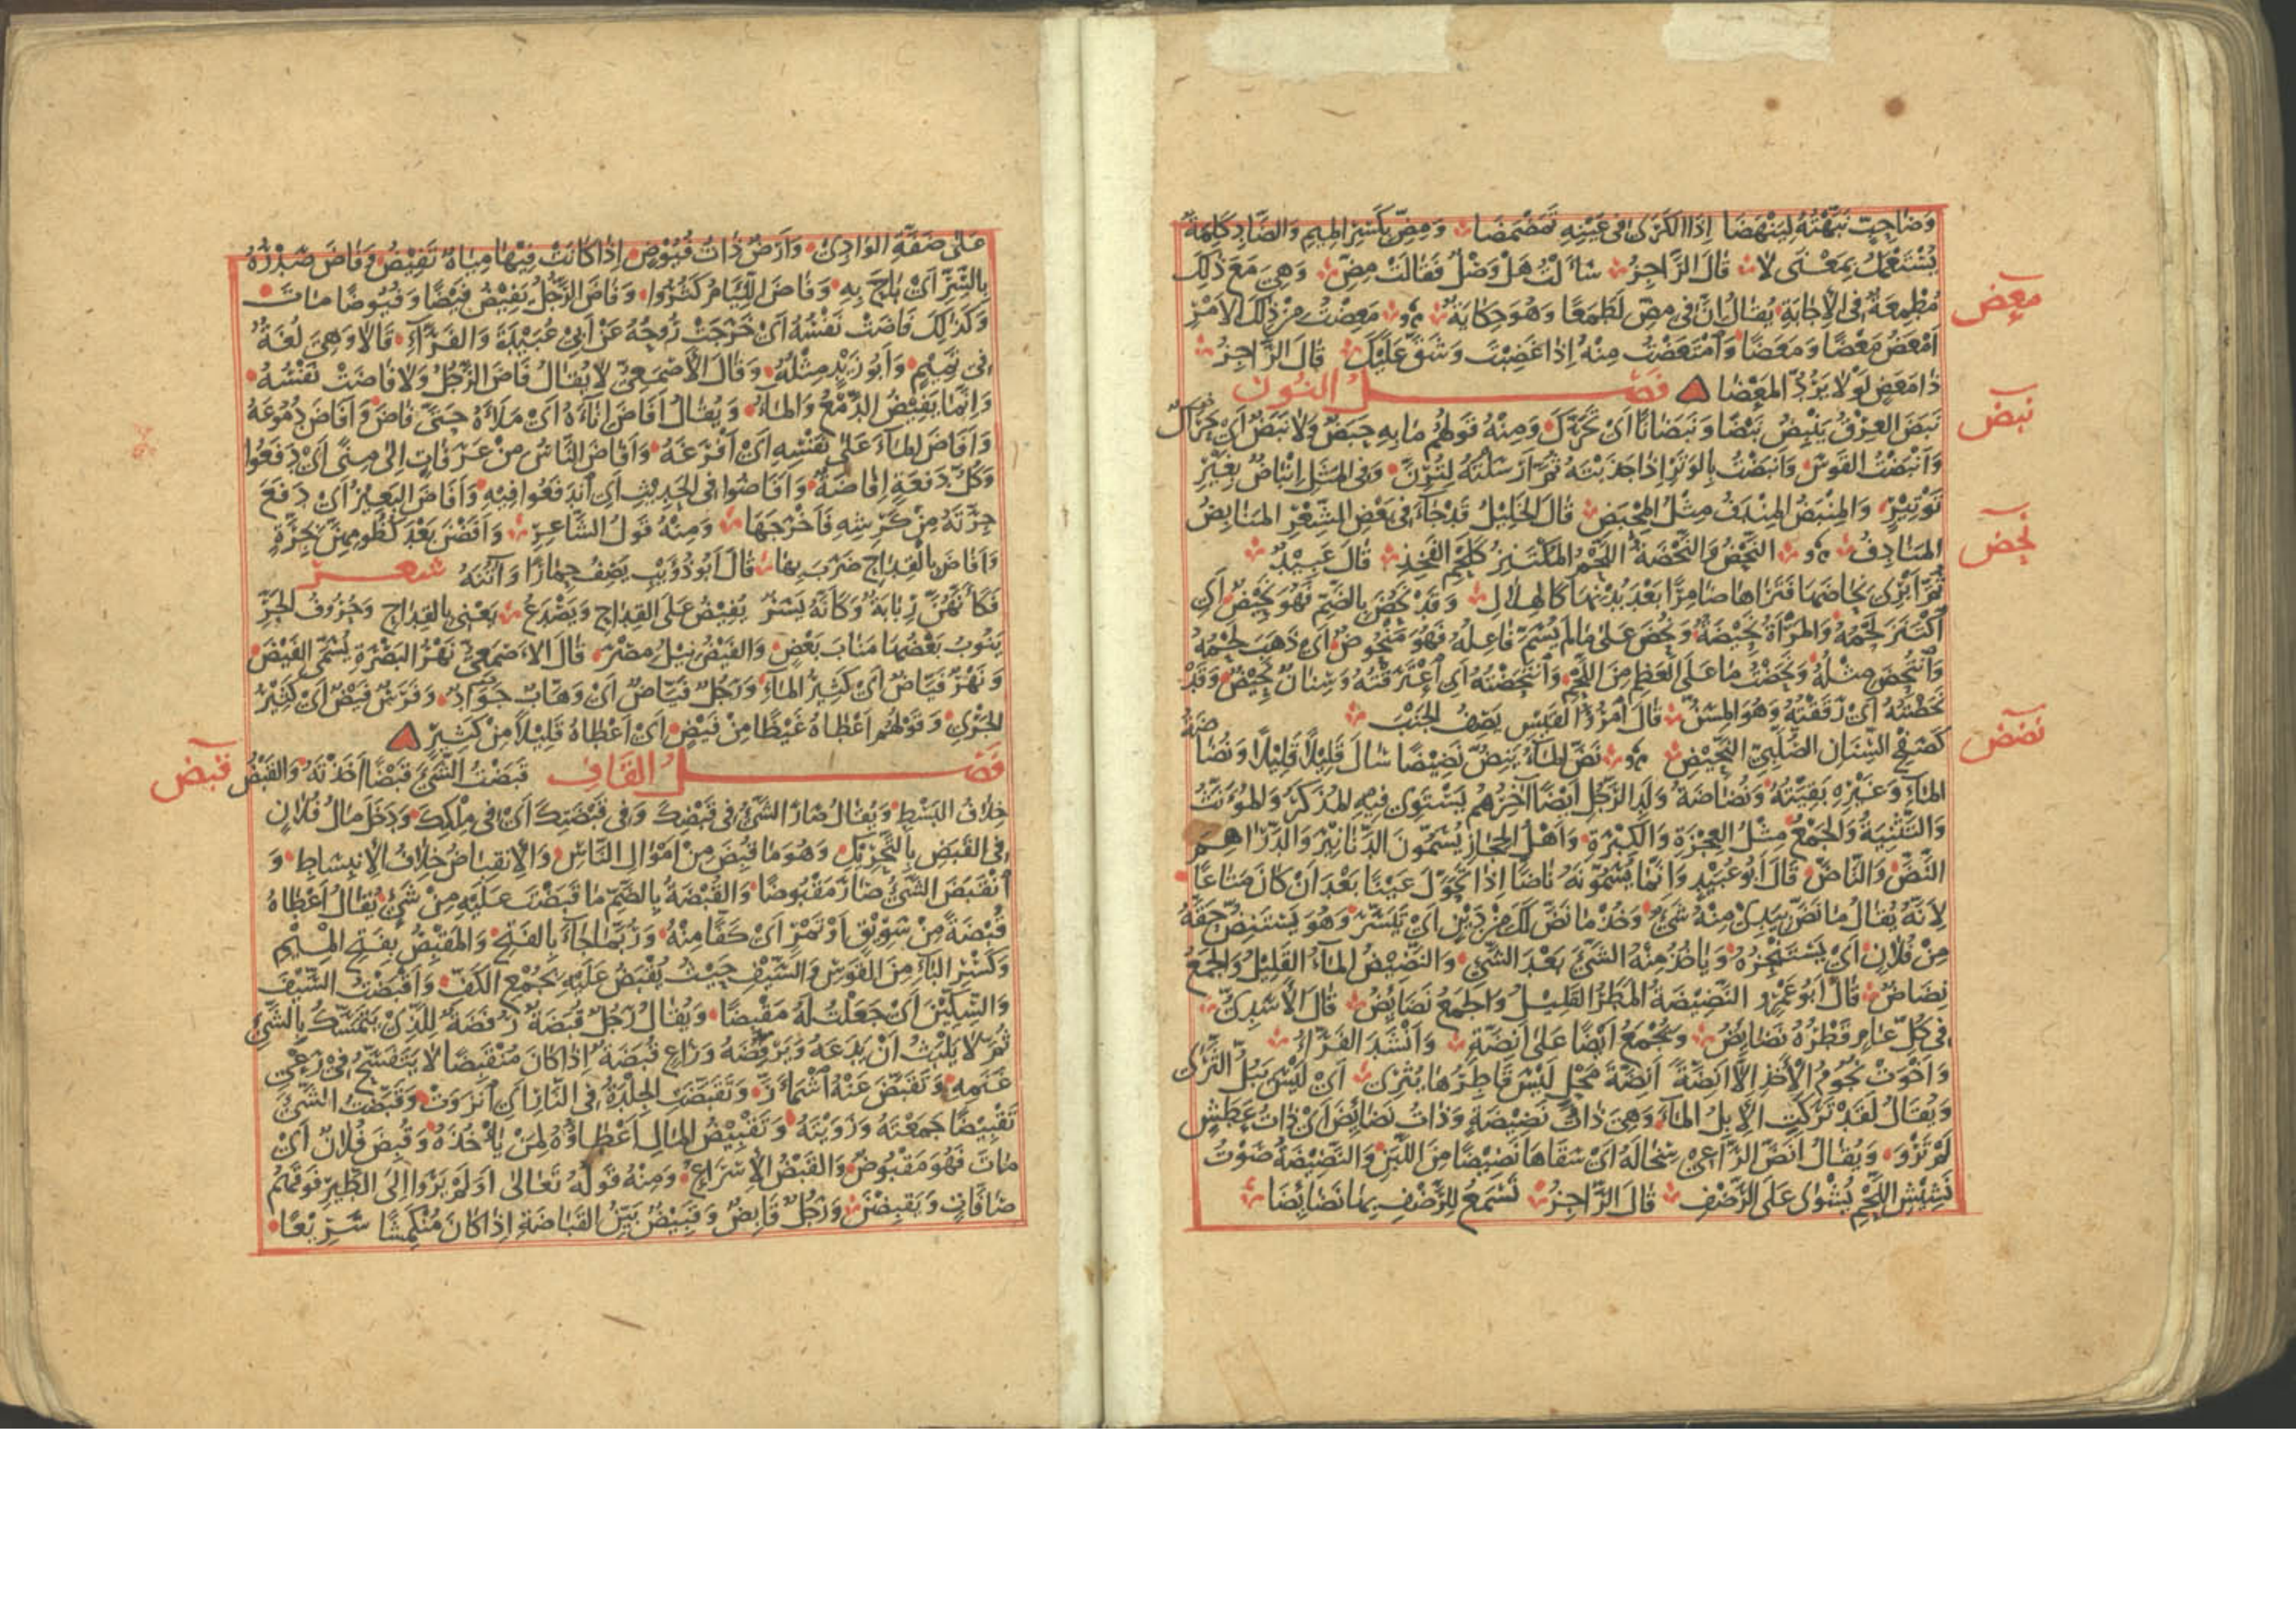 وَصَاحِبٍ نَبَّهْتُهُ لِيَنْهَضَا إِذَا الكَرَى فِي عَيْنِهِ تَمَضْمَضَا وَمِضِّ بِكَسْرِ المِيمِ وَالضَّادِ كَلِمَةٌ
يُسْتَعْمَلُ بِمَعْنَى لَا قَالَ الرَّاجِزُ سَأَلْتُ هَلْ وَصْلٌ فَقَالَتْ مِضِّ وَهِيَ مَعَ ذٰلِكَ
مُطْمِعَةٌ فِي الْإِجَابَةِ يُقَالُ إِنَّ فِي مِضِّ لَطَمَعًا وَهُوَ حِكَايَةٌ مَعِضْتُ مِنْ ذٰلِكَ الأَمْرِ
معض
أَمْعَضُ مَعْضًا وَمَعَضًا وَامْتَعَضْتُ مِنْهُ إِذَا غَضِبْتَ وَشَقَّ عَلَيْكَ قَالَ الرَّاجِزُ
ذَا مَعَضٍ لَوْلَا يَرُدُّ المَعْضَا فَصْلُ النُّونِ
نَبَضَ العِرْقُ يَنْبِضُ نَبْضًا وَنَبَضَانًا أَيْ تَحَرَّكَ وَمِنْهُ قَوْلُهُمْ مَا بِهِ حَبَضٌ وَلَا نَبَضٌ أَيْ حَرَاكٌ
نبض
وَأَنْبَضْتُ القَوْسَ وَأَنْبَضْتُ بِالوَتَرِ إِذَا جَذَبْتَهُ ثُمَّ أَرْسَلْتَهُ لِتُرِنَّ وَفِي المَثَلِ إِنْبَاضٌ بِغَيْرِ
تَوْتِيرٍ وَالمِنْبَضُ المِنْدَفُ مِثْلُ المِحْبَضِ قَالَ الخَلِيلُ قَدْ جَاءَ فِي بَعْضِ الشِّعْرِ المَنَابِضُ
المَنَادِفُ النَّحْضُ وَالنَّحْضَةُ اللَّحْمُ المُكْتَنِزُ كَلَحْمِ الفَخِذِ قَالَ عَبِيدٌ
نحض
ثُمَّ أَبْرِي نِحَاضَهَا فَتَرَاهَا ضَامِرًا بَعْدَ بُدْنِهَا كَالهِلَالِ وَقَدْ نَحُضَ بِالضَّمِّ فَهُوَ نَحِيضٌ أَيِ
اكْتَنَزَ لَحْمُهُ وَالمَرْأَةُ نَحِيضَةٌ وَنُحِضَ عَلَى مَا لَمْ يُسَمَّ فَاعِلُهُ فَهُوَ مَنْحُوضٌ أَيْ ذَهَبَ لَحْمُهُ
وَانْتُحِضَ مِثْلُهُ وَنَحَضْتُ مَا عَلَى العَظْمِ مِنَ اللَّحْمِ وَانْتَحَضْتُهُ أَيِ اعْتَرَقْتُهُ وَسِنَانٌ نَحِيضٌ وَقَدْ
نَحَضْتُهُ أَيْ رَقَّقْتُهُ وَهُوَ المِسَنُّ قَالَ امْرُؤُ القَيْسِ يَصِفُ الجَنْبَ
كَصَفْحِ السِّنَانِ الصُّلَّبِيِّ النَّحِيضِ نَضَّ المَاءُ يَنِضُّ نَضِيضًا سَالَ قَلِيلًا قَلِيلًا وَنُضَاضَةُ
نضض
المَاءِ وَغَيْرِهِ بَقِيَّتُهُ وَنُضَاضَةُ وَلَدِ الرَّجُلِ أَيْضًا آخِرُهُمْ يَسْتَوِي فِيهِ المُذَكَّرُ وَالمُؤَنَّثُ
وَالتَّثْنِيَةُ وَالجَمْعُ مِثْلُ العِجْزَةِ وَالكِبْرَةِ وَأَهْلُ الحِجَازِ يُسَمُّونَ الدَّنَانِيرَ وَالدَّرَاهِمَ
النَّضَّ وَالنَّاضَّ قَالَ أَبُو عُبَيْدٍ وَإِنَّمَا يُسَمُّونَهُ نَاضًّا إِذَا تَحَوَّلَ عَيْنًا بَعْدَ أَنْ كَانَ مَتَاعًا
لِأَنَّهُ يُقَالُ مَا نَضَّ بِيَدِي مِنْهُ شَيْءٌ وَخُذْ مَا نَضَّ لَكَ مِنْ دَيْنٍ أَيْ تَيَسَّرَ وَهُوَ يَسْتَنِضُّ حَقَّهُ
مِنْ فُلَانٍ أَيْ يَسْتَنْجِزُهُ وَيَأْخُذُ مِنْهُ الشَّيْءَ بَعْدَ الشَّيْءِ وَالنَّضِيضُ المَاءُ القَلِيلُ وَالجَمْعُ
نِضَاضٌ قَالَ أَبُو عَمْرٍو النَّضِيضَةُ المَطَرُ القَلِيلُ وَالجَمْعُ نَضَائِضُ قَالَ الأَسَدِيُّ
فِي كُلِّ عَامٍ قَطْرُهُ نَضَائِضُ وَيُجْمَعُ أَيْضًا عَلَى أَنِضَّةٍ وَأَنْشَدَ الفَرَّاءُ
وَأَخْوَتْ نُجُومُ الأَخْذِ إِلَّا أَنِضَّةً أَنِضَّةَ مَحْلٍ لَيْسَ قَاطِرُهَا يُثْرِي أَيْ لَيْسَ يَبُلُّ الثَّرَى
وَيُقَالُ لَقَدْ تَرَكَتِ الإِبِلُ المَاءَ وَهِيَ ذَاتُ نَضِيضَةٍ وَذَاتُ نَضَائِضَ أَيْ ذَاتُ عَطَشٍ
لَمْ تَرْوَ وَيُقَالُ أَنَضَّ الرَّاعِي سِخَالَهُ أَيْ سَقَاهَا نَضِيضًا مِنَ اللَّبَنِ وَالنَّضِيضَةُ صَوْتُ
نَشِيشِ اللَّحْمِ يُشْوَى عَلَى الرَّضْفِ قَالَ الرَّاجِزُ تَسْمَعُ لِلرَّضْفِ بِهَا نَضَائِضَا
عَلَى ضَفَّةِ الوَادِي وَأَرْضٌ ذَاتُ فُيُوضٍ إِذَا كَانَتْ فِيهَا مِيَاهٌ تَفِيضُ وَفَاضَ صَدْرُهُ
بِالسِّرِّ أَيْ بَاحَ بِهِ وَفَاضَ اللِّئَامُ كَثُرُوا وَفَاضَ الرَّجُلُ يَفِيضُ فَيْضًا وَفُيُوضًا مَاتَ
وَكَذٰلِكَ فَاضَتْ نَفْسُهُ أَيْ خَرَجَتْ رُوحُهُ عَنْ أَبِي عُبَيْدَةَ وَالفَرَّاءِ قَالَا وَهِيَ لُغَةٌ
فِي تَمِيمٍ وَأَبُو زَيْدٍ مِثْلُهُ وَقَالَ الأَصْمَعِيُّ لَا يُقَالُ فَاضَ الرَّجُلُ وَلَا فَاضَتْ نَفْسُهُ
وَإِنَّمَا يَفِيضُ الدَّمْعُ وَالمَاءُ وَيُقَالُ أَفَاضَ إِنَاءَهُ أَيْ مَلَأَهُ حَتَّى فَاضَ وَأَفَاضَ دُمُوعَهُ
وَأَفَاضَ المَاءَ عَلَى نَفْسِهِ أَيْ أَفْرَغَهُ وَأَفَاضَ النَّاسُ مِنْ عَرَفَاتٍ إِلَى مِنًى أَيْ دَفَعُوا
وَكُلُّ دَفْعَةٍ إِفَاضَةٌ وَأَفَاضُوا فِي الحَدِيثِ أَيِ انْدَفَعُوا فِيهِ وَأَفَاضَ البَعِيرُ أَيْ دَفَعَ
جِرَّتَهُ مِنْ كَرِشِهِ فَأَخْرَجَهَا وَمِنْهُ قَوْلُ الشَّاعِرِ وَأَفَضْنَ بَعْدَ كُظُومِهِنَّ بِجِرَّةٍ
وَأَفَاضَ بِالقِدَاحِ ضَرَبَ بِهَا قَالَ أَبُو ذُؤَيْبٍ يَصِفُ حِمَارًا وَأُتُنَهُ شعر
فَكَأَنَّهُنَّ رِبَابَةٌ وَكَأَنَّهُ يَسَرٌ يُفِيضُ عَلَى القِدَاحِ وَيَصْدَعُ يَعْنِي بِالقِدَاحِ وَحُرُوفُ الجَرِّ
يَنُوبُ بَعْضُهَا مَنَابَ بَعْضٍ وَالفَيْضُ نِيلُ مِصْرَ قَالَ الأَصْمَعِيُّ نَهْرُ البَصْرَةِ يُسَمَّى الفَيْضَ
وَنَهْرٌ فَيَّاضٌ أَيْ كَثِيرُ المَاءِ وَرَجُلٌ فَيَّاضٌ أَيْ وَهَّابٌ جَوَادٌ وَفَرَسٌ فَيْضٌ أَيْ كَثِيرُ
الجَرْيِ وَقَوْلُهُمْ أَعْطَاهُ غَيْضًا مِنْ فَيْضٍ أَيْ أَعْطَاهُ قَلِيلًا مِنْ كَثِيرٍ
فَصْلُ القَافِ قَبَضْتُ الشَّيْءَ قَبْضًا أَخَذْتَهُ وَالقَبْضُ
قبض
خِلَافُ البَسْطِ وَيُقَالُ صَارَ الشَّيْءُ فِي قَبْضِكَ وَفِي قَبْضَتِكَ أَيْ فِي مِلْكِكَ وَدَخَلَ مَالُ فُلَانٍ
فِي القَبَضِ بِالتَّحْرِيكِ وَهُوَ مَا قُبِضَ مِنْ أَمْوَالِ النَّاسِ وَالِانْقِبَاضُ خِلَافُ الِانْبِسَاطِ وَ
انْقَبَضَ الشَّيْءُ صَارَ مَقْبُوضًا وَالقُبْضَةُ بِالضَّمِّ مَا قَبَضْتَ عَلَيْهِ مِنْ شَيْءٍ يُقَالُ أَعْطَاهُ
قُبْضَةً مِنْ سَوِيقٍ أَوْ تَمْرٍ أَيْ كَفًّا مِنْهُ وَرُبَّمَا جَاءَ بِالفَتْحِ وَالمَقْبِضُ بِفَتْحِ المِيمِ
وَكَسْرِ البَاءِ مِنَ القَوْسِ وَالسَّيْفِ حَيْثُ يُقْبَضُ عَلَيْهِ بِجُمْعِ الكَفِّ وَأَقْبَضْتُ السَّيْفَ
وَالسِّكِّينَ أَيْ جَعَلْتُ لَهُ مَقْبِضًا وَيُقَالُ رَجُلٌ قُبَضَةٌ رُفَضَةٌ لِلَّذِي يَتَمَسَّكُ بِالشَّيْءِ
ثُمَّ لَا يَلْبَثُ أَنْ يَدَعَهُ وَيَرْفِضَهُ وَرَاعٍ قُبَضَةٌ إِذَا كَانَ مُنْقَبِضًا لَا يَتَفَسَّحُ فِي رَعْيِ
غَنَمِهِ وَتَقَبَّضَ عَنْهُ اشْمَأَزَّ وَتَقَبَّضَتِ الجِلْدَةُ فِي النَّارِ أَيِ انْزَوَتْ وَقَبَّضْتُ الشَّيْءَ
تَقْبِيضًا جَمَعْتَهُ وَزَوَيْتَهُ وَتَقْبِيضُ المَالِ إِعْطَاؤُهُ لِمَنْ يَأْخُذُهُ وَقُبِضَ فُلَانٌ أَيْ
مَاتَ فَهُوَ مَقْبُوضٌ وَالقَبْضُ الإِسْرَاعُ وَمِنْهُ قَوْلُهُ تَعَالَى أَوَلَمْ يَرَوْا إِلَى الطَّيْرِ فَوْقَهُمْ
صَافَّاتٍ وَيَقْبِضْنَ وَرَجُلٌ قَابِضٌ وَقَبِيضٌ بَيِّنُ القَبَاضَةِ إِذَا كَانَ مُنْكَمِشًا سَرِيعًا